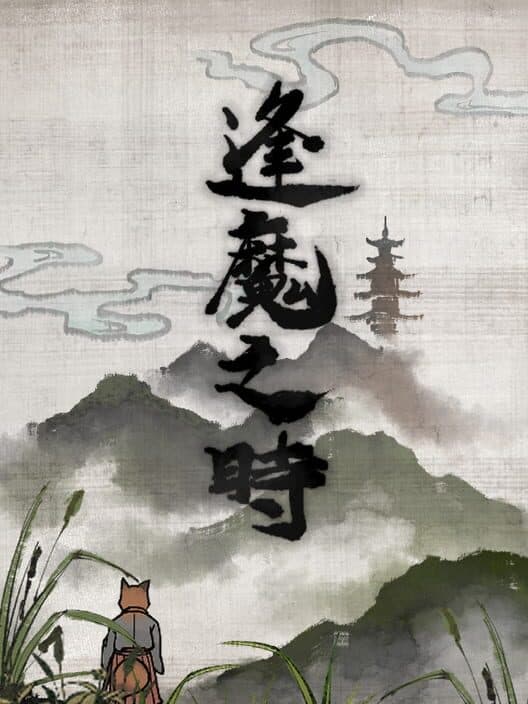 逢魔之時